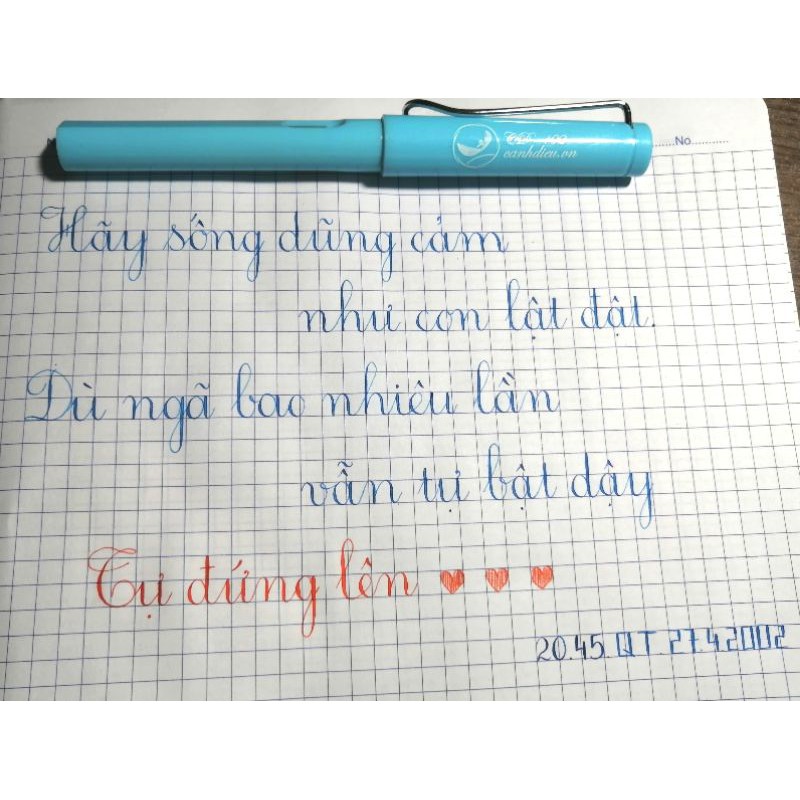 CD-199
canhdieu.vn
No
Hãy sống dũng cảm
như con lật đật.
Dù ngã bao nhiêu lần
vẫn tự bật dậy
Tự đứng lên
20.45. QT. 27.4.2002